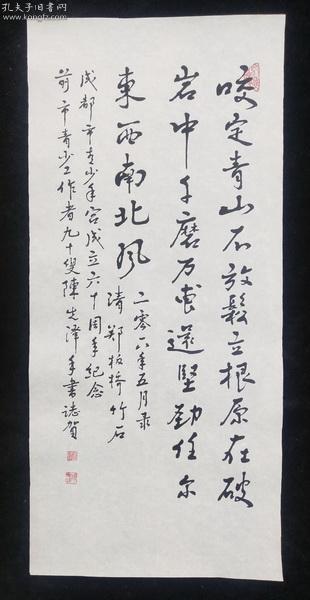 孔夫子旧书网
www.kongfz.com
咬定青山不放鬆立根原在破
岩中千磨万击還堅劲任尔
東西南北风 二零一六年五月录
清郑板桥竹石
成都市青少年宫成立六十周年纪念
前市青少工作者九十叟陳先泽手書誌賀